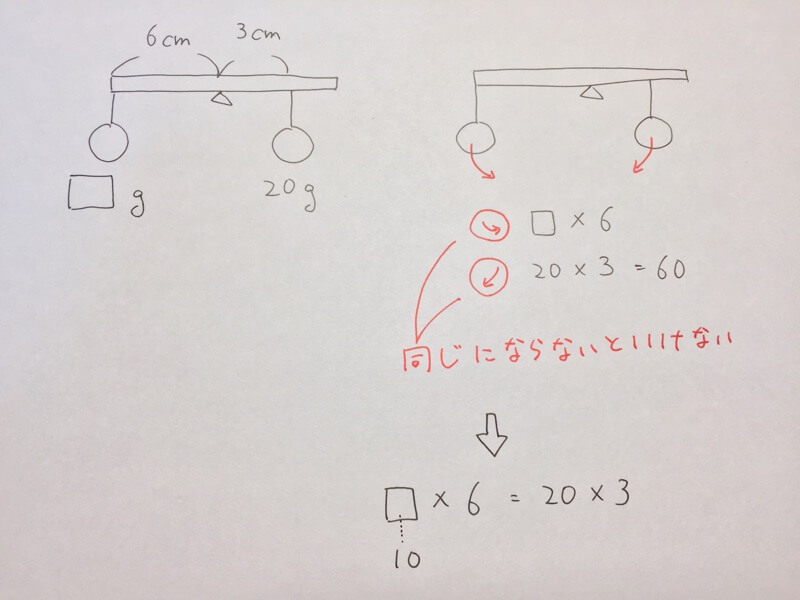 6cm 3cm
□ g 20g
□ × 6
20 × 3 = 60
同じにならないといけない
□ × 6 = 20 × 3
10